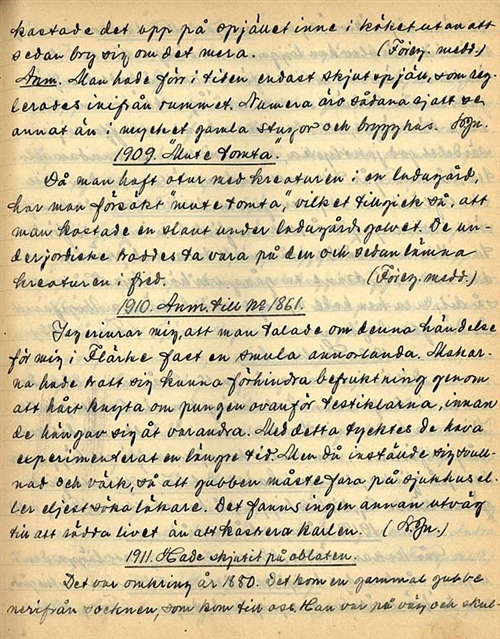 kastade det upp på spjället inne i köket utan att
sedan bry sig om det mera. (Föreg. medd.)
Anm. Man hade förr i tiden endast skjutspjäll, som reg-
lerades inifrån rummet. Numera äro sådana sällan att se
annat än i mycket gamla stugor och brygghus.
1909. "Mute tomta".
Då man haft otur med kreaturen i en ladugård,
har man försökt "mute tomta", vilket tillgick så, att
man kastade in slant under ladugårdsgolvet. De un-
derjordiske troddes ta vara på den och sedan lämna
kreaturen i fred. (Föreg. medd.)
1910. Anm. till No 1861.
Jag erinrar mig, att man talade om denna händelse
för mig i Flärke fast en smula annorlunda. Makar-
na hade trott sig kunna förhindra befruktning genom
att hårt knyta om pungen ovanför testiklarna, innan
de hängav sig åt varandra. Med detta tycktes de hava
experimenterat en längre tid. Men då inställde sig svull-
nad och värk, så att gubben måste fara på sjukhus el-
ler eljest söka läkare. Det fanns ingen annan utväg
till att rädda livet än att kastrera karlen.
1911. Hade skjutit på oblaten.
Det var omkring år 1880. Det kom en gammal gubbe
nerifrån socknen, som kom till oss. Han var på väg och skul-